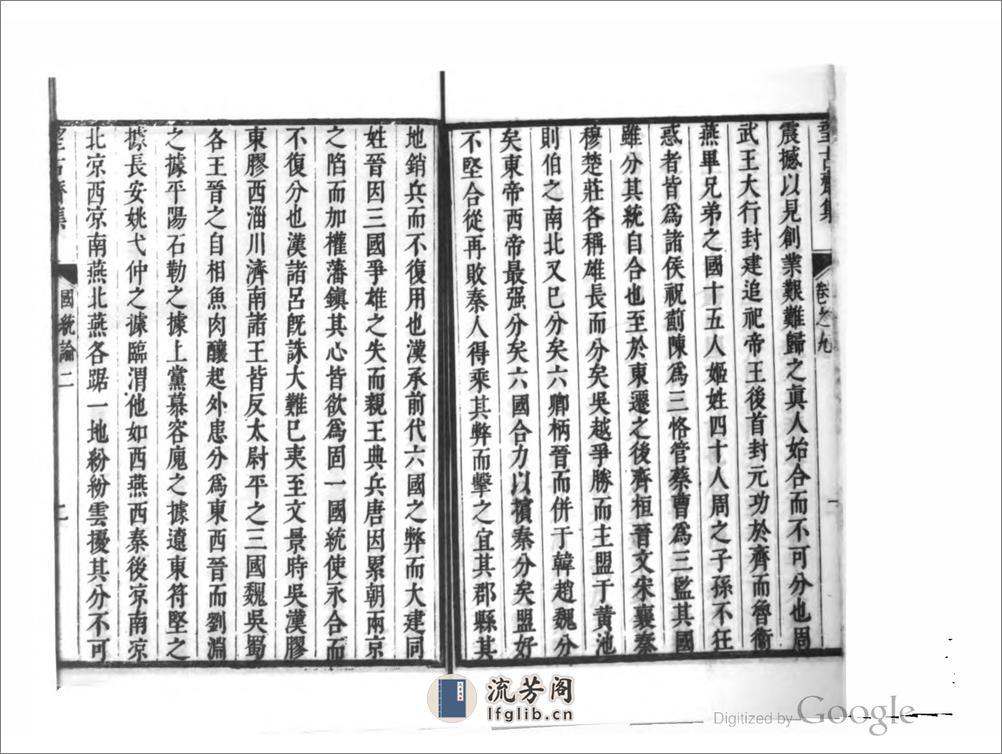 望古齋集
卷之九
一
震撼以見創業艱難歸之眞人始合而不可分也周
武王大行封建追祀帝王後首封元功於齊而魯衞
燕畢兄弟之國十五人姬姓四十人周之子孫不狂
惑者皆爲諸侯祝薊陳爲三恪管蔡曹爲三監其國
雖分其統自合也至於東遷之後齊桓晉文宋襄秦
穆楚莊各稱雄長而分矣吳越爭勝而主盟于黃池
則伯之南北又已分矣六卿柄晉而併于韓趙魏分
矣東帝西帝最强分矣六國合力以擯秦分矣盟好
不堅合從再敗秦人得乘其弊而擊之宜其郡縣其
地銷兵而不復用也漢承前代六國之弊而大建同
姓晉因三國爭雄之失而親王典兵唐因累朝兩京
之陷而加權藩鎭其心皆欲爲固一國統使永合而
不復分也漢諸呂旣誅大難已夷至文景時吳漢膠
東膠西淄川濟南諸王皆反太尉平之三國魏吳蜀
各王晉之自相魚肉釀起外患分爲東西晉而劉淵
之據平陽石勒之據上黨慕容廆之據遼東符堅之
據長安姚弋仲之據臨渭他如西燕西秦後凉南凉
北凉西凉南燕北燕各踞一地紛紛雲擾其分不可
望古齋集
國統論二
二
流芳阁
lfglib.cn
Digitized by Google